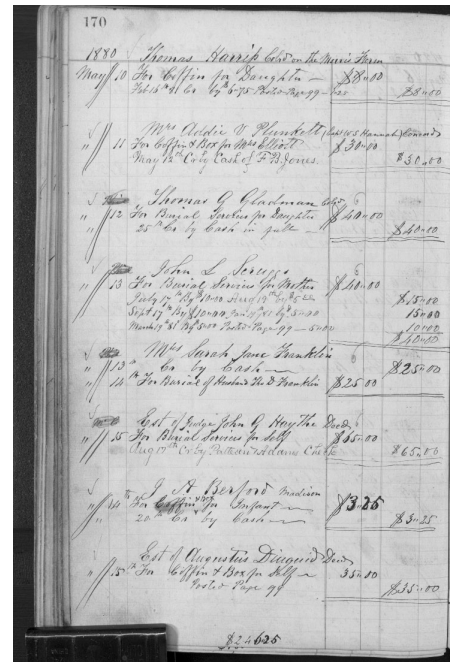 170
1880 Thomas Harris Col'd on the Farm
May 10 For Coffin for Daughter $8"00
Feb 15th 81 Cr by 6-75 Posted Page 99 $8"00
Mrs Addie V Plunkett
" 11 For Coffin & Box for Mrs Elliott $30"00
May 12th Cr by Cash of F B Jones. $30"00
Thomas G Gladman
" 12 For Burial Services for Daughter $40"00
25th Cr by Cash in full $40"00
John L Scruggs
" 13 For Burial Services for Mother $40"00
July 17th By $10"00 $15"00
Sept 17th By $10"00 5"00 15"00
March 19th 81 By $5"00 Posted Page 99 5"00 10"00
$40"00
Mrs Sarah Jane Franklin
" 13th Cr by Cash $25"00
" 14th For Burial of Husband D Franklin $25"00
Est of Judge John G Haythe Decd
" 15 For Burial Services for Self $65"00
Aug 17th Cr by Adams Check $65"00
J A Berford Madison
" 14th For Coffin for Infant $3"25
" 20th Cr by Cash $3"25
Est of Augustus Decd
" 15th For Coffin & Box for Self 35"00
Posted Page 99 $35"00
$246 25